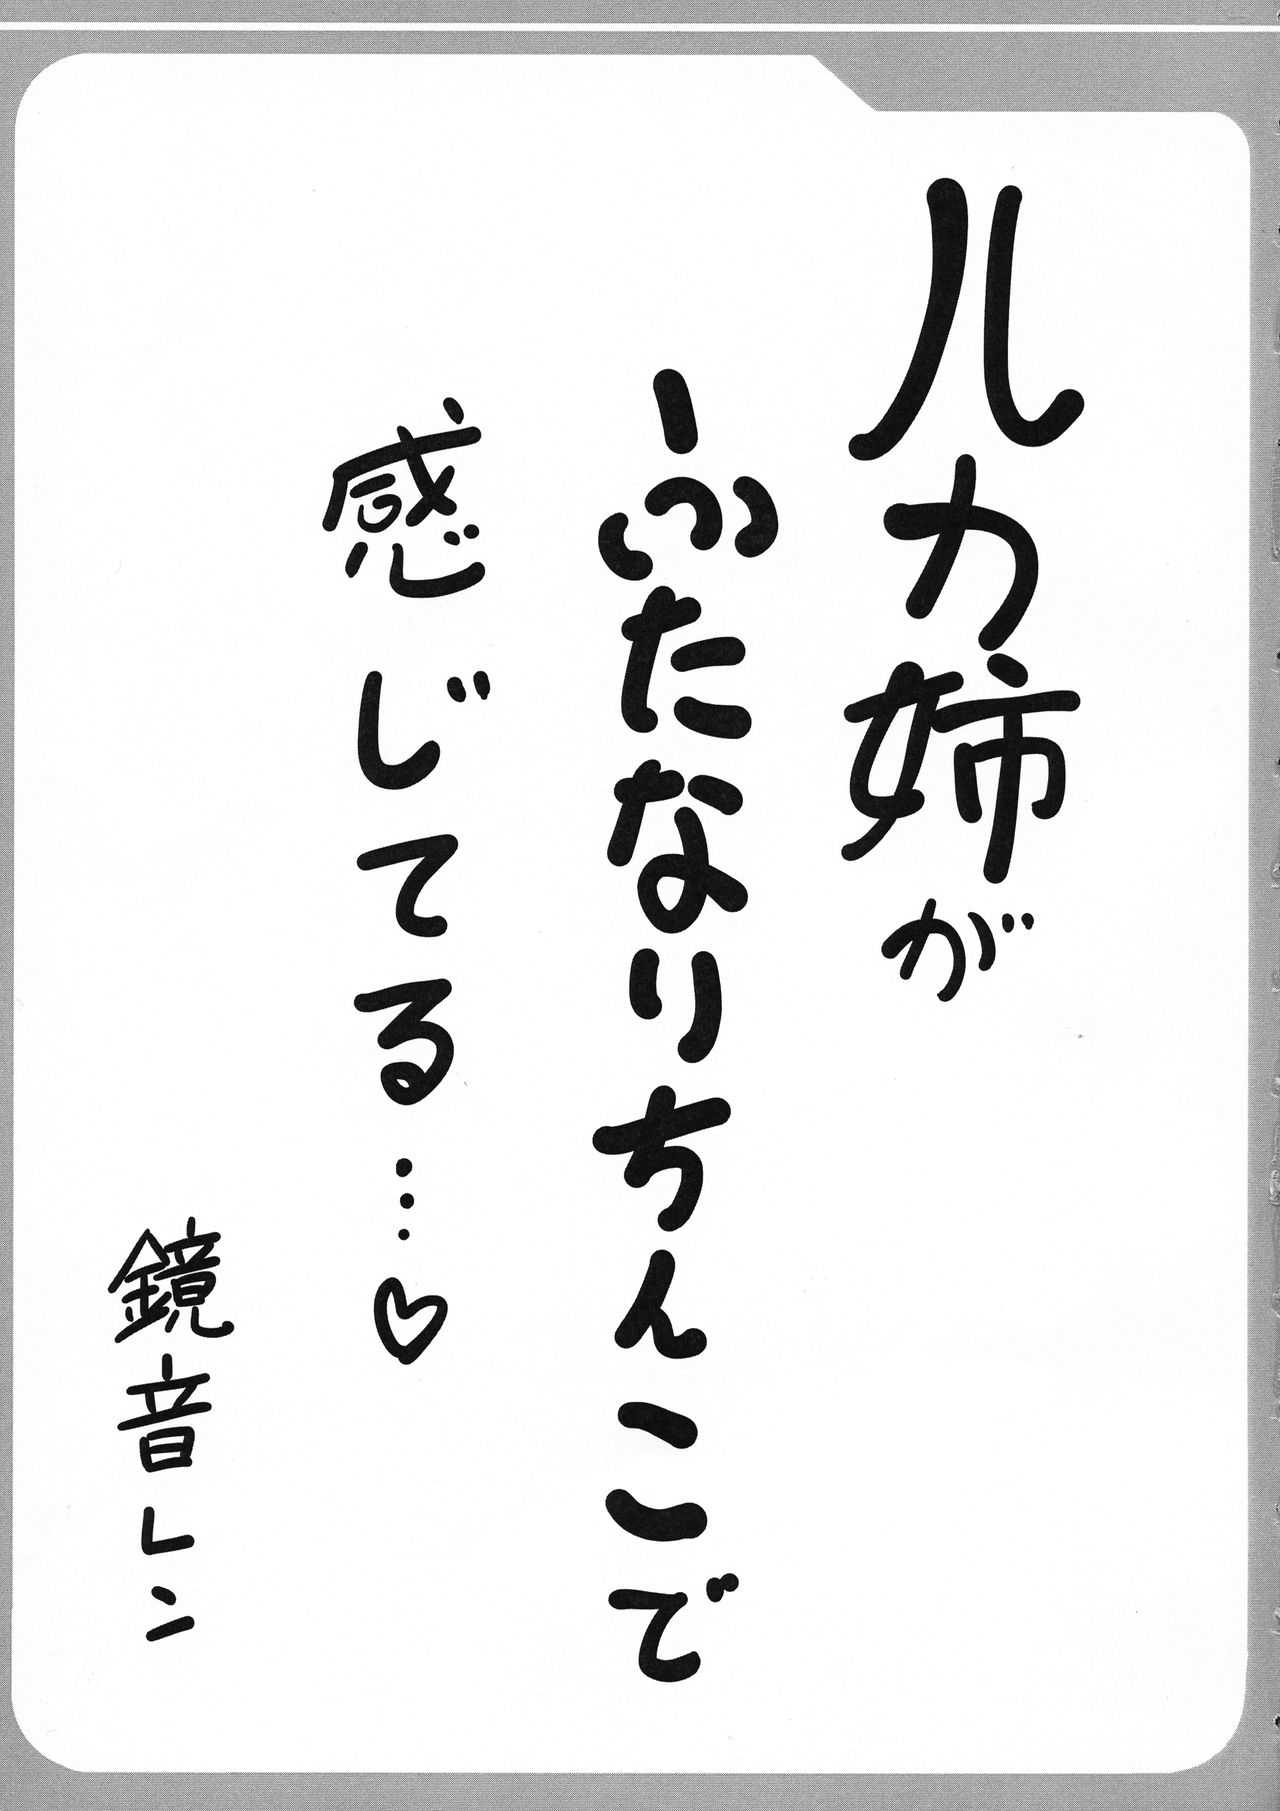 ルカ姉が
ふたなりちんこで
感じてる…♡
鏡音レン